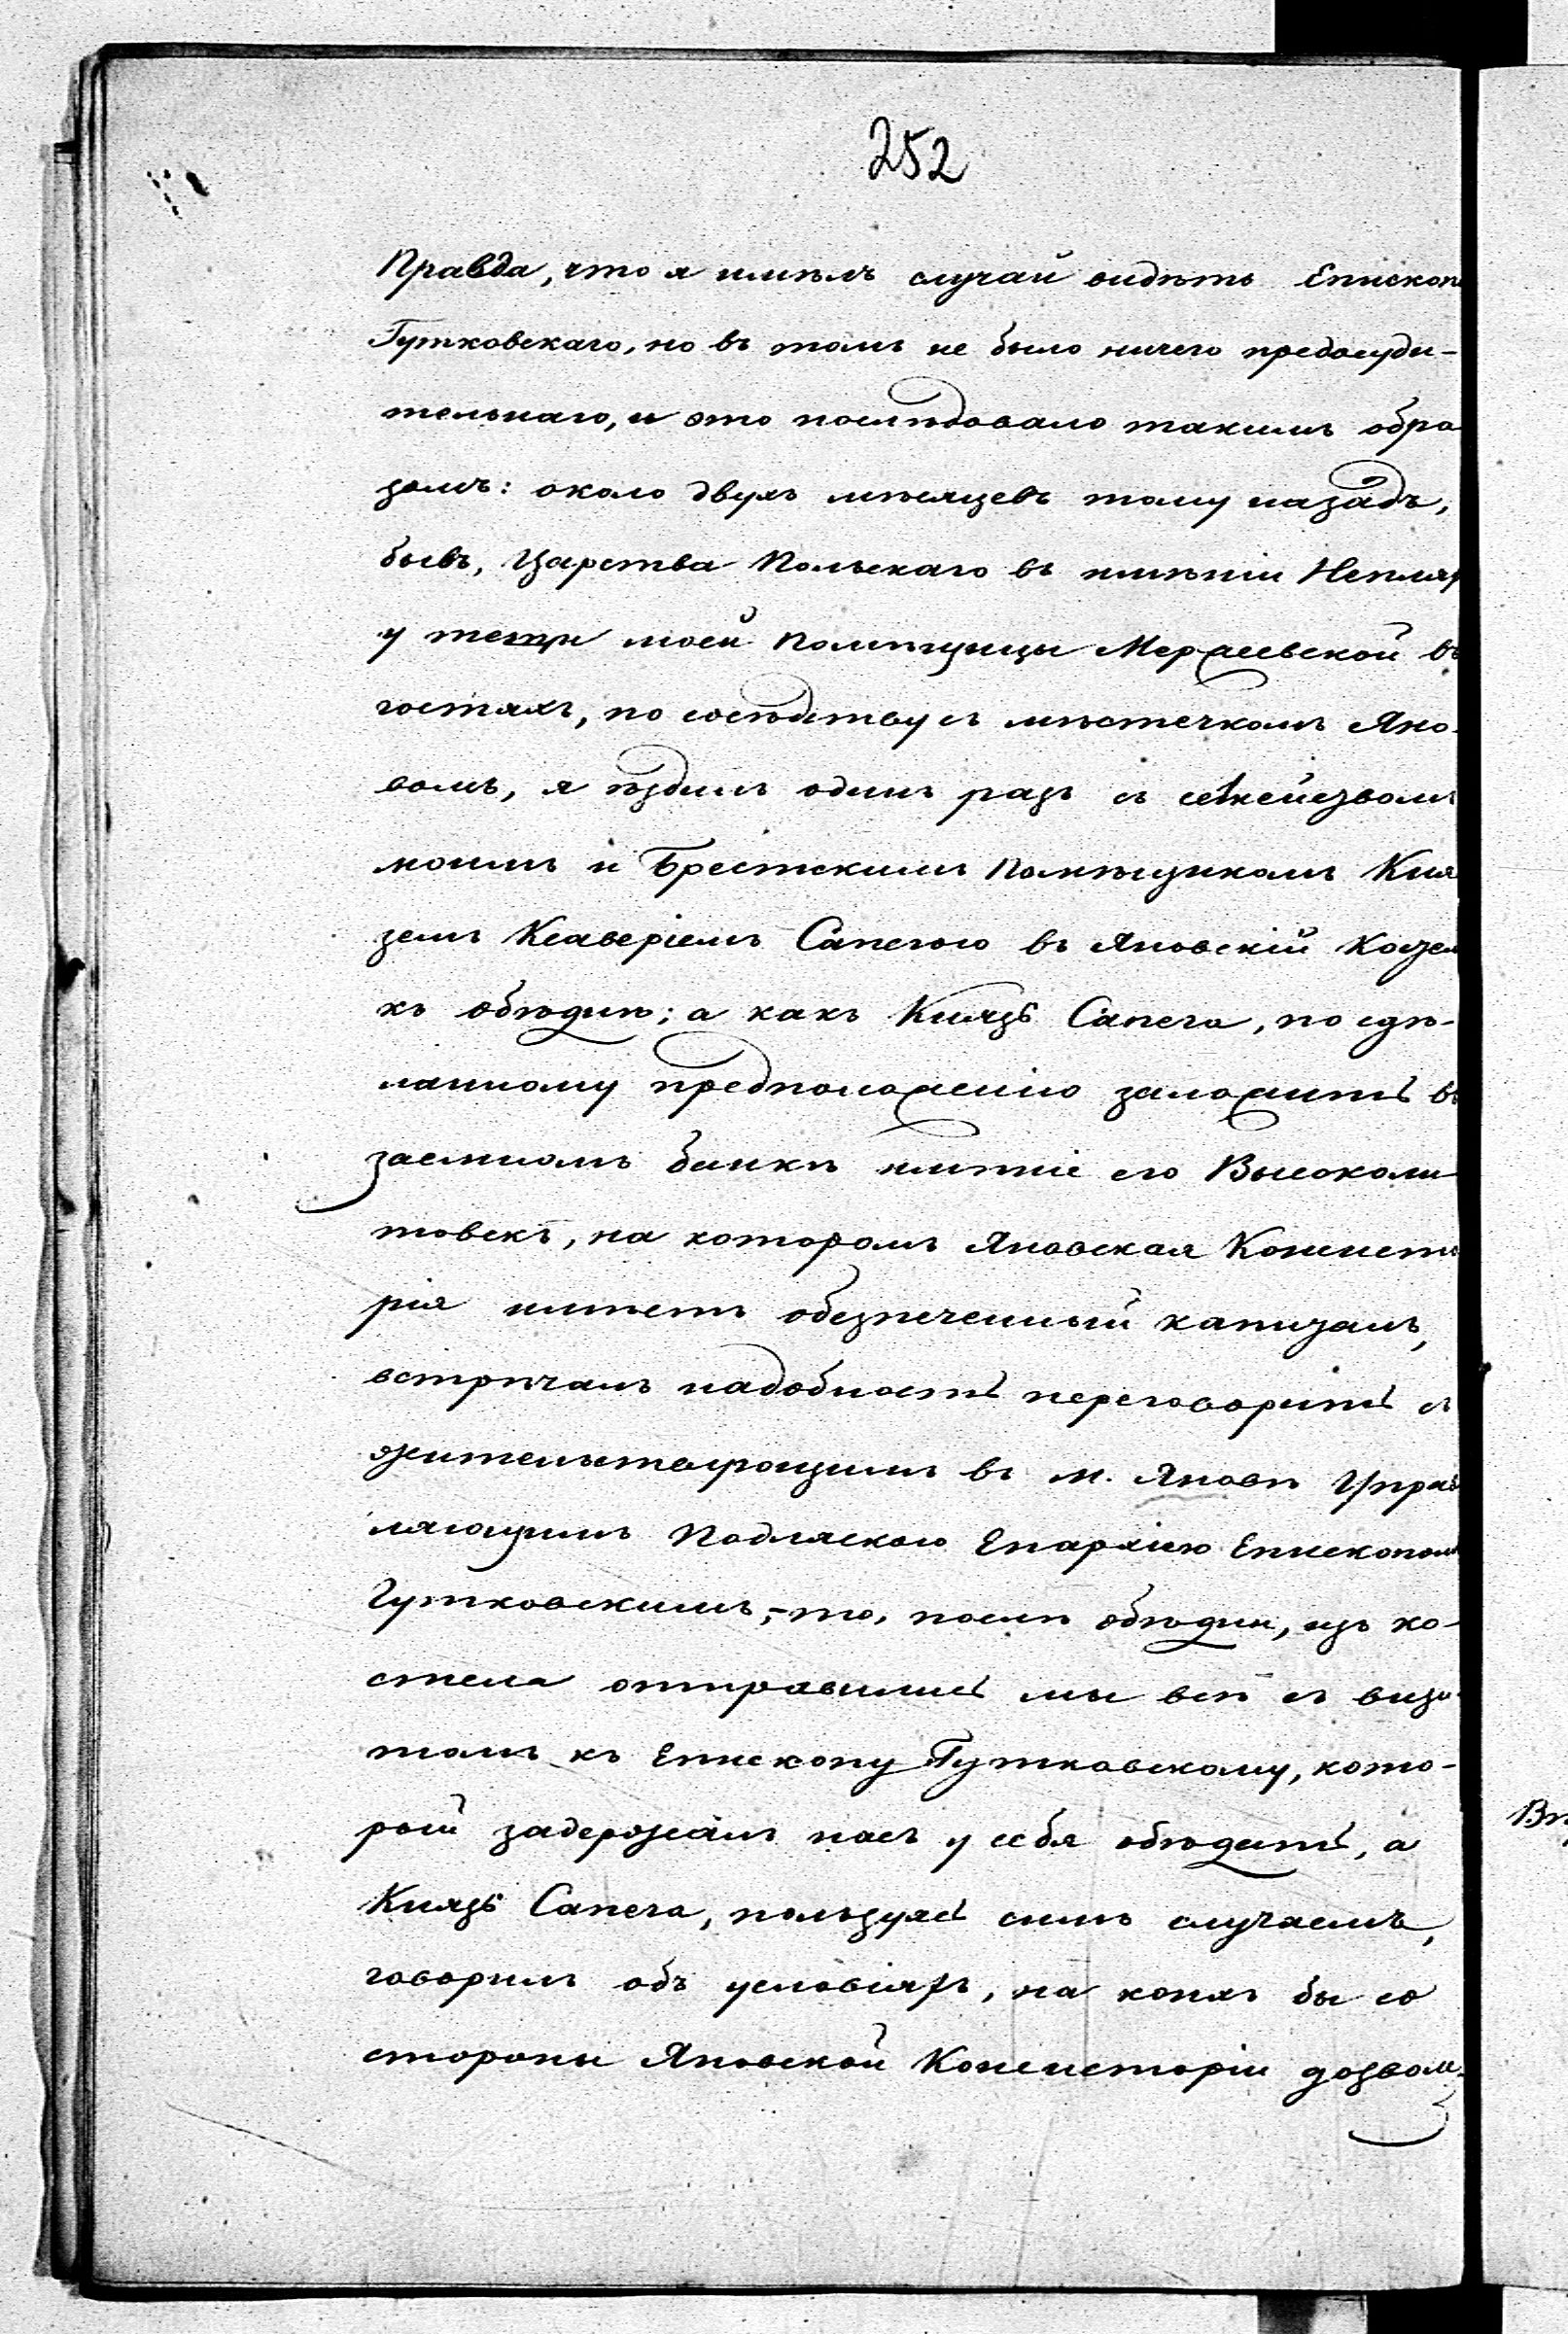 252
Правда, что я имѣлъ случай видѣть Епископа
Гутковскаго, но въ томъ не было ничего предосуди-
тельнаго, и это послѣдовало такимъ обра
зомъ: около двухъ мѣсяцевъ тому назадъ,
бывъ, Царства Польскаго въ имѣніи
у тетки моей помѣщицы Мержеевской въ
гостяхъ, по сосѣдству съ мѣстечкомъ Яно-
вомъ, я ѣздилъ одинъ разъ съ
моимъ и Брестскимъ помѣщикомъ Кня
земъ Ксаверіемъ Сапегою въ Яновскій
къ обѣднѣ; а какъ Князь Сапега, по сдѣ-
ланному предположенію заложить въ
заемномъ банкѣ имѣніе его Высоколи
товскъ, на которомъ Яновская Консисто
рія имѣетъ обезпеченный капиталъ,
встрѣчалъ надобность переговорить съ
жительствующимъ въ м. Яновѣ Управ
ляющимъ Подляскою Епархіею Епископомъ
Гутковскимъ,-то, послѣ обѣдни, изъ ко-
стела отправились мы всѣ съ визи-
томъ къ Епископу Гутковскому, кото-
рый задержалъ насъ у себя обѣдать, а
Князь Сапега, пользуясь симъ случаемъ,
говорилъ объ условіяхъ, на коихъ бы со
стороны Яновской Консисторіи дозволе-